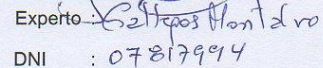 Experto : Gallegos Montalvo
DNI : 07817994